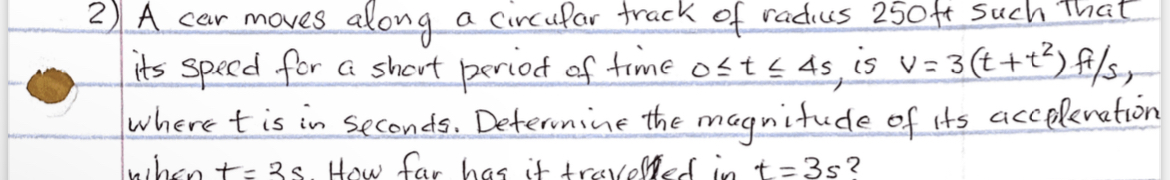 2) A car moves along a circular track of radius 250ft such that
its speed for a short period of time 0≤t≤ 4s, is v = 3(t+t²) ft/s,
where t is in seconds. Determine the magnitude of its acceleration
when t= 3s. How far has it travelled in t=3s?